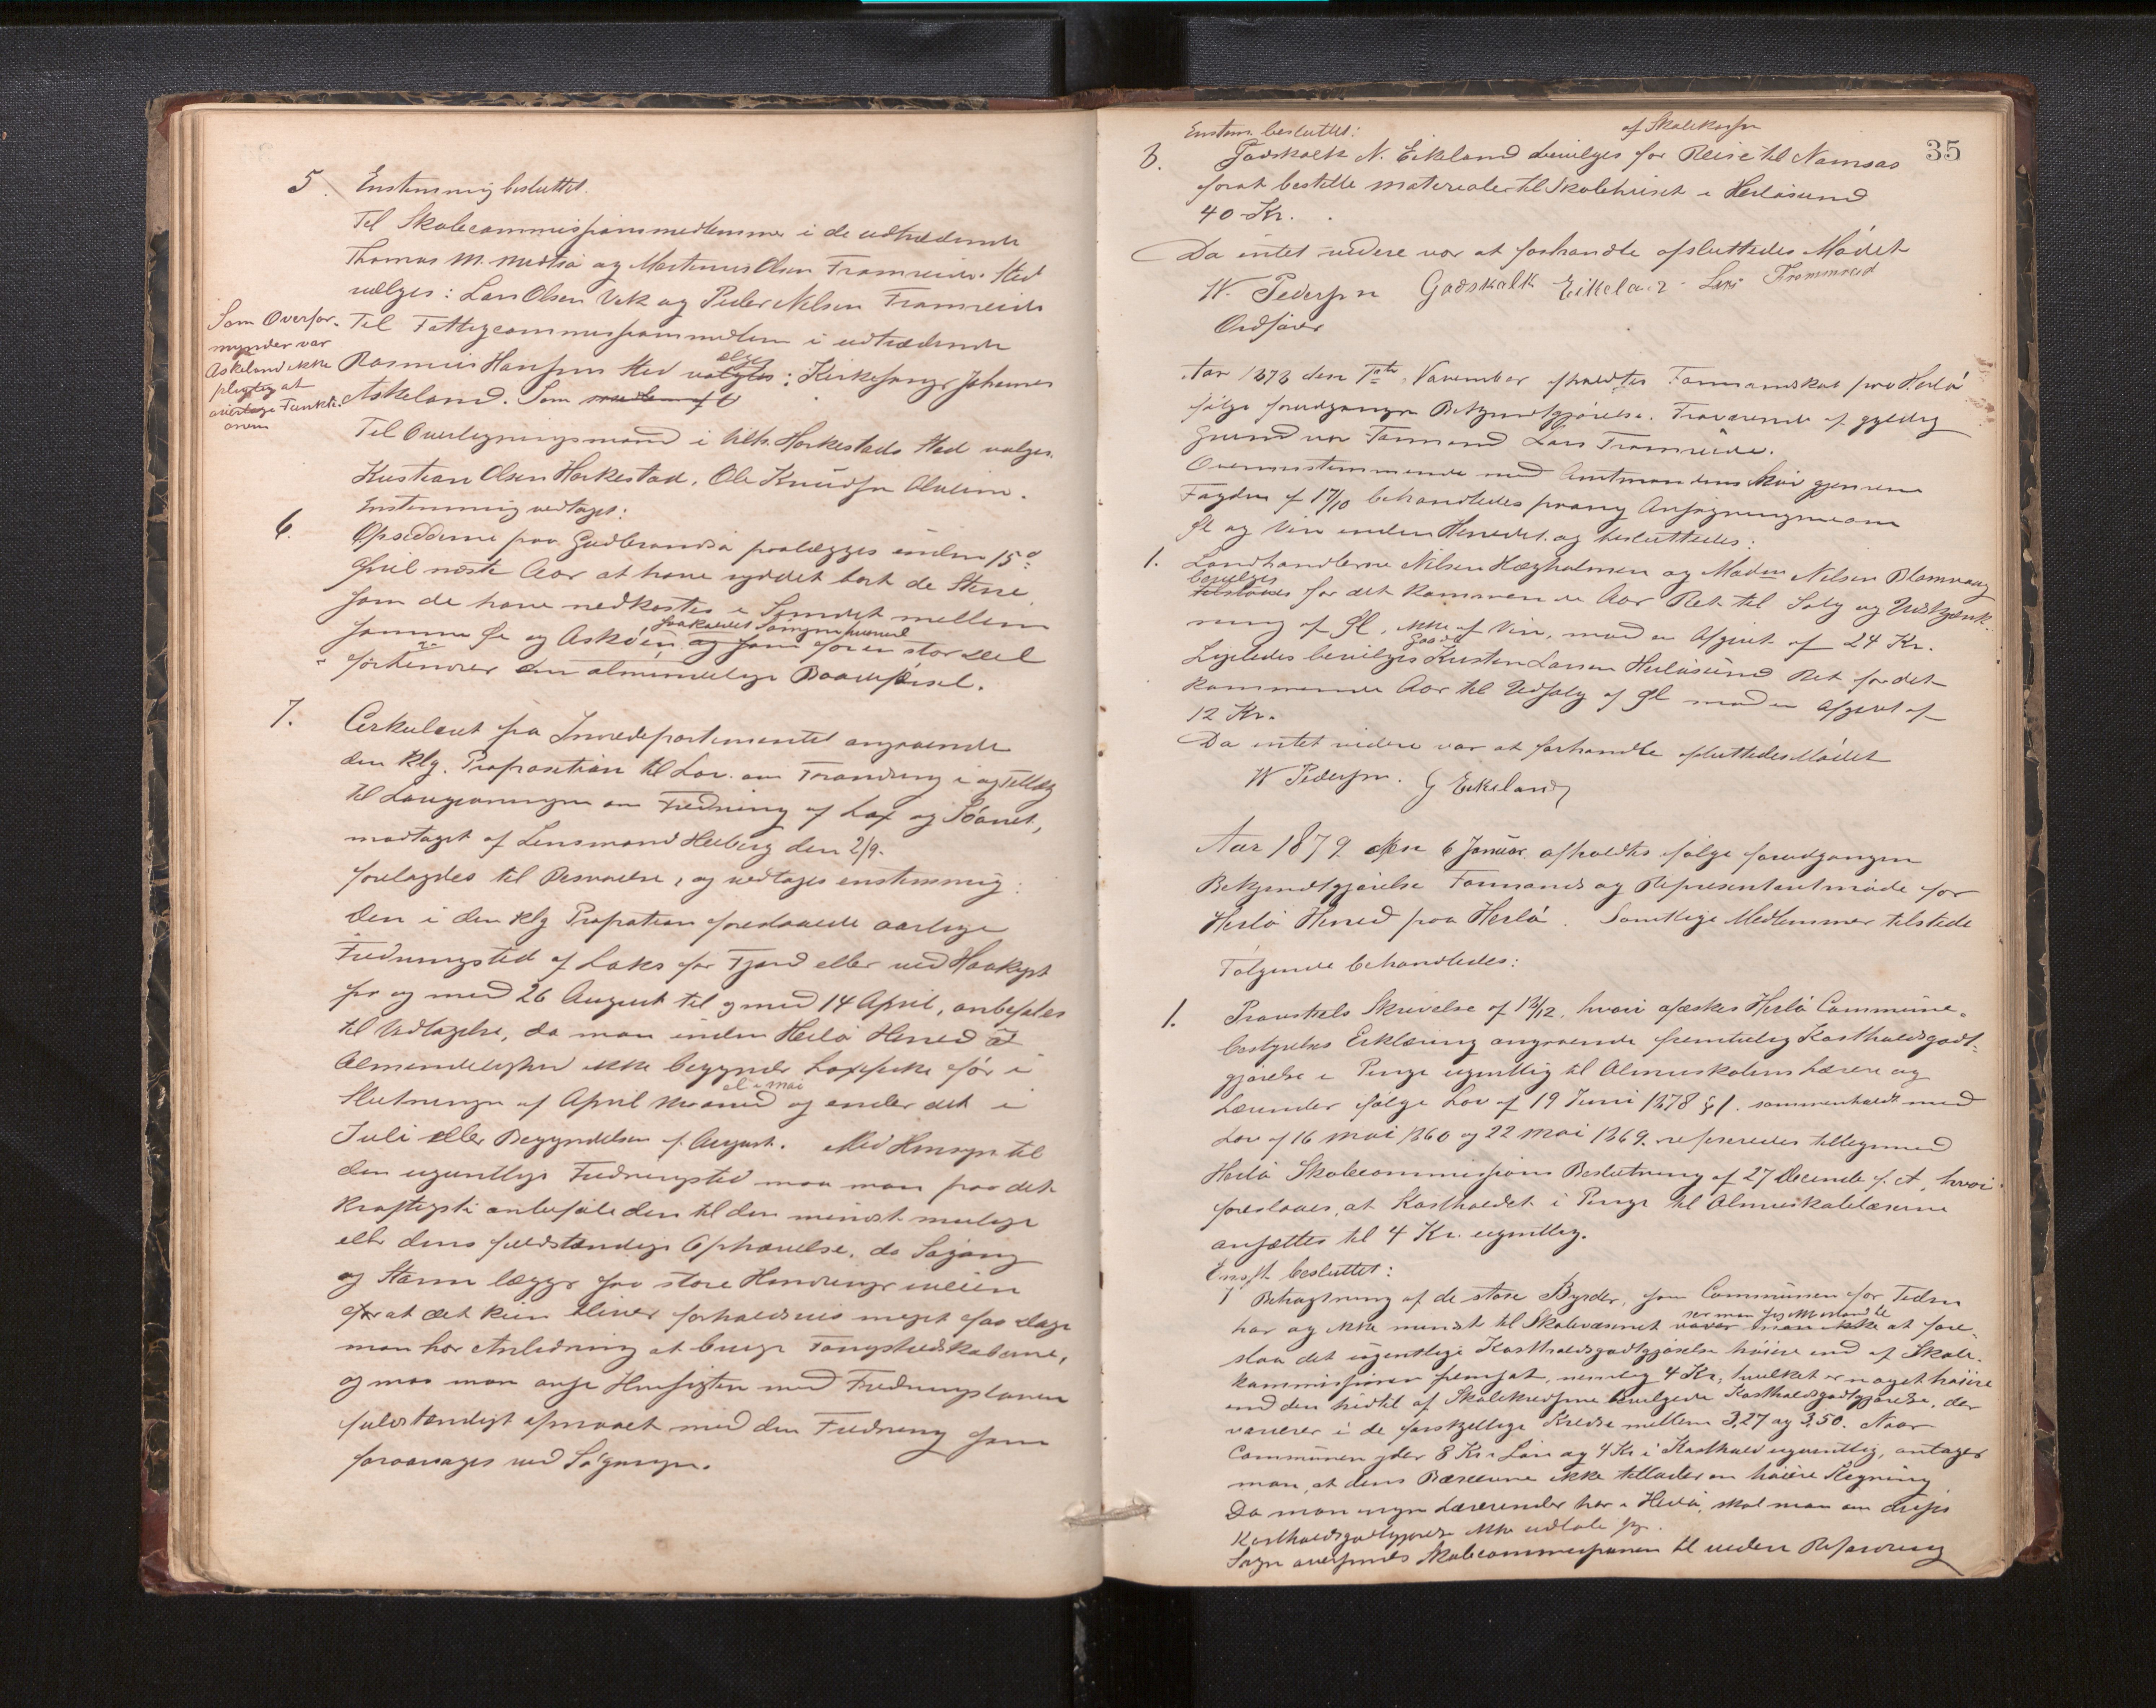 5. Enstemmig besluttet.
Til Skolecommissionsmedlemmer i de udtrædende
Thomas M. Midtsø og Martinus Olsen Framreide Sted
vælges: Lars Olsen Vik og Peder Nilsen Framreide
Til Fattigcommissionsmedlem i udtrædende
Rasmus Hansens Sted vælges: Kirkesanger Johannes
Askeland. Som
Som Overfor-
mynder var
Askeland ikke
pligtig at
overtage Funkti-
onen
Til Overligningsmand i Hilb. Harkestads Sted vælges
Kristian Olsen Harkestad, Ole Knudsen Alveim.
Enstemmig vedtaget:
6. Opsidderne paa Gudbrandsø paalægges inden 15de
April næste Aar at have ryddet bort de Stene
som de have nedkastet i Sundet mellem
samme Ø og Askøen, saakaldet og som for en stor Deel
forhindrer den almindelige Baadfærdsel.
7. Cirkulæret fra Indredepartementet angaaende
den klg. Proposition til Lov om Forandring i og Tillæg
til Lovgivningen om Fredning af Lax og Søørret,
modtaget af Lensmand Heiberg den 2/9.
forelagdes til Besvarelse, og vedtages enstemmig:
Den i den klg Proposition foreslaaede aarlige
Fredningstid af Laks for Fjord eller ved Havkyst
fra og med 26 August til og med 14 April, anbefales
til Vedtagelse, da man inden Herlø Herred i
Almindelighed ikke begynder Laxfiske før i
Slutningen af April Maaned el. i Mai og ender det i
Juli eller Begyndelsen af August. Med Hensyn til
den ugentlige Fredningstid maa man paa det
kraftigste anbefale den til den mindst mulige
eller dens fuldstændige Ophævelse, da Søgang
og Storm lægger saa store Hindringer iveien
for at det kun bliver forholdsvis meget faa Dage
man har Anledning at bruge Fangstredskaberne,
og maa man anse Hensigten med Fredningsloven
fuldstændigt opnaaet med den Fredning som
foraarsages ved Søgangen.
35
Enstem. besluttet:
8. Godskalk N. Eikeland bevilges af Skolekassen for Reise til Namsos
forat bestille Materialer til Skolehuset i Herløsund
40 Kr.
Da intet videre var at forhandle afsluttedes Mødet
W. Pedersen Godskalk Eikeland Lars Frammreid
Ordfører
Aar 1878 den 7de November afholdtes Formandskab paa Herlø
følge forudgangen Bekjendtgjørelse. Fraværende af gyldig
Grund var Formand Lars Framreide.
Overensstemmende med Amtmandens Skriv gjennem
Fogden af 17/10 behandledes Ansøgningerne om
Øl og Vin inden Herredet og besluttedes:
1. Landhandlerne Nilsen Hægholmen og Madm Nilsen Blomvaag
bevilges for det kommende Aar Ret til Salg og Udskjænk-
ning af Øl, ikke af Vin, mod en Afgivt af 24 Kr.
Ligeledes bevilges Kristen Larsen Herløsund Ret for det
kommende Aar til Udsalg af Øl mod en Afgivt af
12 Kr.
Da intet videre var at forhandle afsluttedes Mødet
W Pedersen. G Eikeland
Aar 1879 den 6 Januar afholdtes følge forudgangen
Bekjendtgjørelse Formands og Representantmøde for
Herlø Herred paa Herlø. Samtlige Medlemmer tilstede
Følgende behandledes:
1. Provstiets Skrivelse af 13/12, hvori æskes Herlø Commune-
bestyrelses Erklæring angaaende fremtidig Kostholdsgodt-
gjørelse i Penge ugentlig til Almueskolens Lærere og
Lærerinder følge Lov af 19 Juni 1878 § 1. sammenholdt med
Lov af 16 Mai 1860 og 22 Mai 1869 refereredes tilligemed
Herlø Skolecommissions Beslutning af 27 Decembr f. A, hvori
foreslaaes, at Kostholdet i Penge til Almueskolelærerne
ansættes til 4 Kr. ugentlig.
Enst. besluttet:
I Betragtning af de store Byrder, som Communen for Tiden
har og ikke mindst til Skolevæsenet ser man sig ikke istand til at fore-
slaa det ugentlige Kostholdsgodtgjørelse høiere end af Skole-
kommissionen fremsat, nemlig 4 Kr, hvilket er noget høiere
end den hidtil af Skolekredsene bevilgede Kostholdsgodtgjørelse, der
varierer i de forskjellige Kredse mellem 3,27 og 3,50. Naar
Communen yder 8 Kr i Løn og 4 Kr i Kosthold ugentlig, antager
man, at dens Bæreevne ikke tillader en høiere Stegning
Da man ingen Lærerinder har i Herlø, skal man om disses
Kostholdsgodtgjørelse ikke udtale sig.
Sagen oversendes Skolecommissionen til videre Besørgning